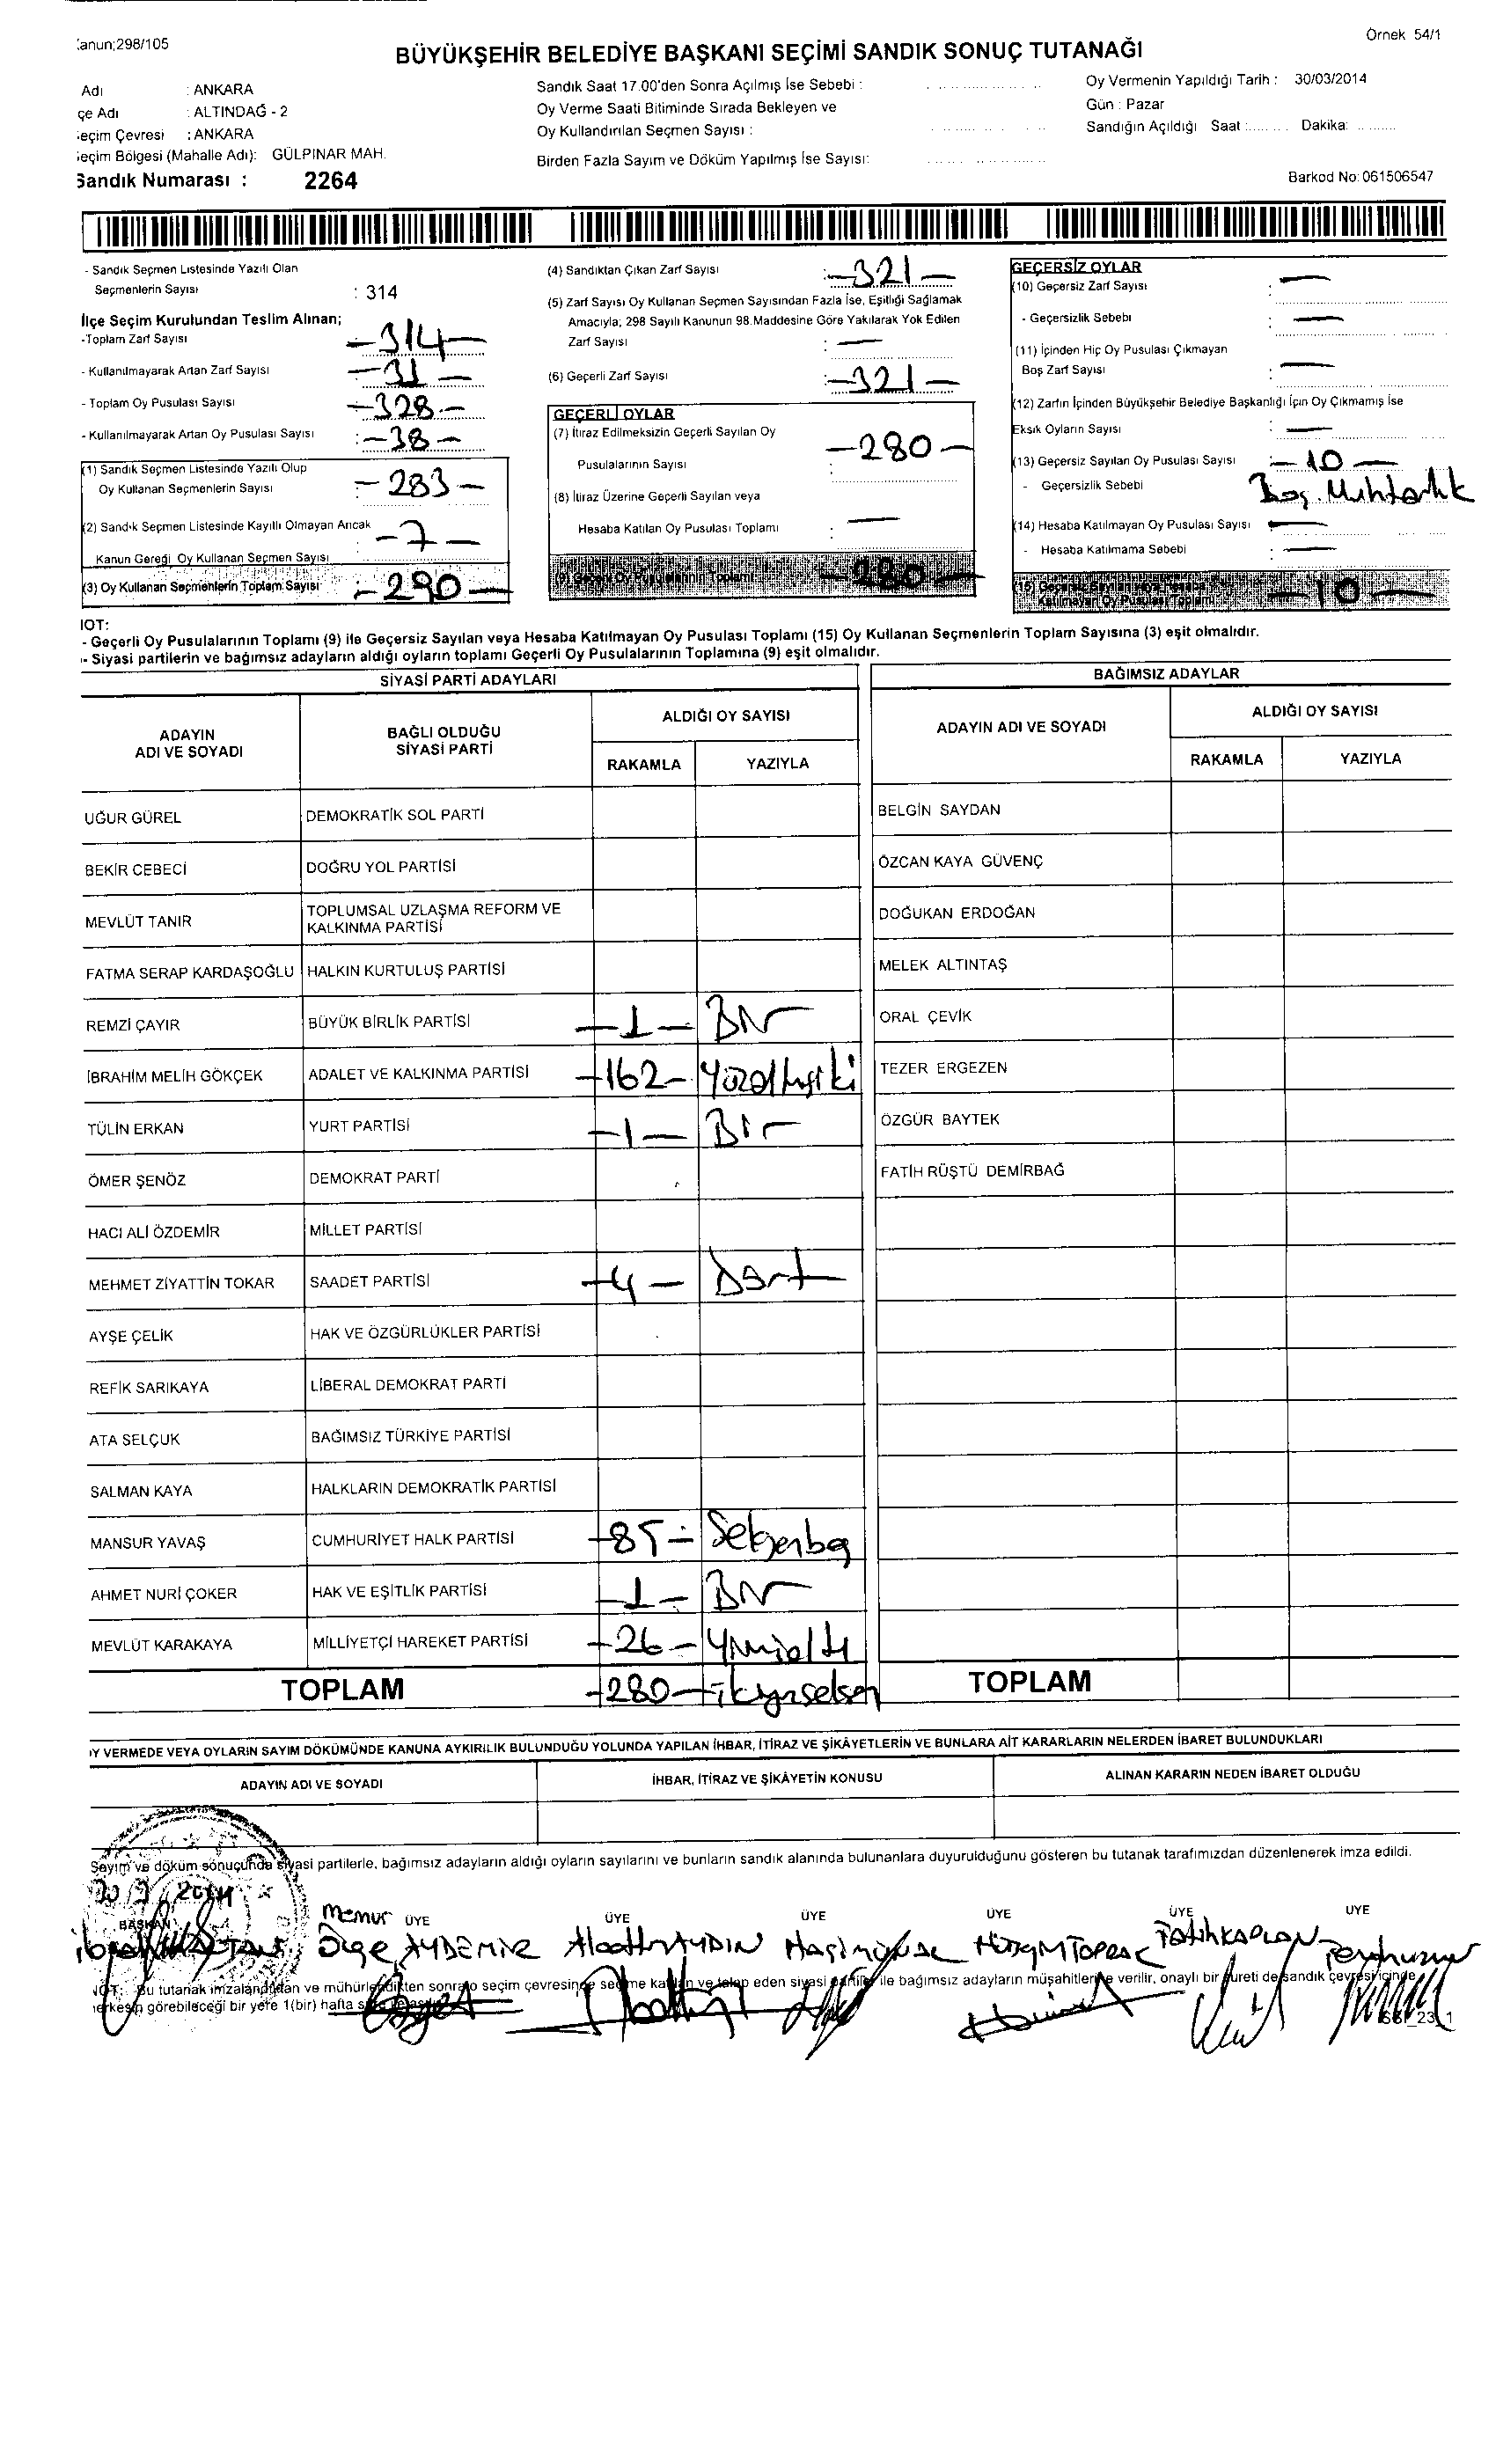 anun;298/105
Örnek 54/1
BÜYÜKŞEHİR BELEDİYE BAŞKANI SEÇİMİ SANDIK SONUÇ TUTANAĞI
Adı : ANKARA
çe Adı : ALTINDAĞ - 2
eçim Çevresi : ANKARA
eçim Bölgesi (Mahalle Adı): GÜLPINAR MAH.
Sandık Numarası : 2264
Sandık Saat 17.00'den Sonra Açılmış İse Sebebi :
Oy Verme Saati Bitiminde Sırada Bekleyen ve
Oy Kullandırılan Seçmen Sayısı :
Birden Fazla Sayım ve Döküm Yapılmış İse Sayısı:
Oy Vermenin Yapıldığı Tarih : 30/03/2014
Gün : Pazar
Sandığın Açıldığı Saat :........ Dakika: ........
Barkod No:061506547
- Sandık Seçmen Listesinde Yazılı Olan
Seçmenlerin Sayısı : 314
İlçe Seçim Kurulundan Teslim Alınan;
-Toplam Zarf Sayısı -314-
- Kullanılmayarak Artan Zarf Sayısı -31-
- Toplam Oy Pusulası Sayısı -328-
- Kullanılmayarak Artan Oy Pusulası Sayısı :-38-
(1) Sandık Seçmen Listesinde Yazılı Olup
Oy Kullanan Seçmenlerin Sayısı :-283-
(2) Sandık Seçmen Listesinde Kayıtlı Olmayan Ancak
Kanun Gereği Oy Kullanan Seçmen Sayısı :-7-
(3) Oy Kullanan Seçmenlerin Toplam Sayısı :-290-
(4) Sandıktan Çıkan Zarf Sayısı :-321-
(5) Zarf Sayısı Oy Kullanan Seçmen Sayısından Fazla İse, Eşitliği Sağlamak
Amacıyla; 298 Sayılı Kanunun 98.Maddesine Göre Yakılarak Yok Edilen
Zarf Sayısı : -
(6) Geçerli Zarf Sayısı :-321-
GEÇERLİ OYLAR
(7) İtiraz Edilmeksizin Geçerli Sayılan Oy
Pusulalarının Sayısı : -280-
(8) İtiraz Üzerine Geçerli Sayılan veya
Hesaba Katılan Oy Pusulası Toplamı : -
(9) Geçerli Oy Pusulalarının Toplamı -280-
GEÇERSİZ OYLAR
(10) Geçersiz Zarf Sayısı : -
- Geçersizlik Sebebi : -
(11) İçinden Hiç Oy Pusulası Çıkmayan
Boş Zarf Sayısı : -
(12) Zarfın İçinden Büyükşehir Belediye Başkanlığı İçin Oy Çıkmamış İse
Eksik Oyların Sayısı : -
(13) Geçersiz Sayılan Oy Pusulası Sayısı :-10-
- Geçersizlik Sebebi Boş. Muhtarlık
(14) Hesaba Katılmayan Oy Pusulası Sayısı -
- Hesaba Katılmama Sebebi : -
(15) Geçersiz Sayılan veya Hesaba
Katılmayan Oy Pusulası Toplamı -10-
IOT:
- Geçerli Oy Pusulalarının Toplamı (9) ile Geçersiz Sayılan veya Hesaba Katılmayan Oy Pusulası Toplamı (15) Oy Kullanan Seçmenlerin Toplam Sayısına (3) eşit olmalıdır.
- Siyasi partilerin ve bağımsız adayların aldığı oyların toplamı Geçerli Oy Pusulalarının Toplamına (9) eşit olmalıdır.
SİYASİ PARTİ ADAYLARI
ADAYIN ADI VE SOYADI BAĞLI OLDUĞU SİYASİ PARTİ ALDIĞI OY SAYISI
RAKAMLA YAZIYLA
UĞUR GÜREL DEMOKRATİK SOL PARTİ
BEKİR CEBECİ DOĞRU YOL PARTİSİ
MEVLÜT TANIR TOPLUMSAL UZLAŞMA REFORM VE KALKINMA PARTİSİ
FATMA SERAP KARDAŞOĞLU HALKIN KURTULUŞ PARTİSİ
REMZİ ÇAYIR BÜYÜK BİRLİK PARTİSİ -1- Bir
İBRAHİM MELİH GÖKÇEK ADALET VE KALKINMA PARTİSİ -162- Yüzaltmışiki
TÜLİN ERKAN YURT PARTİSİ -1- Bir
ÖMER ŞENÖZ DEMOKRAT PARTİ
HACI ALİ ÖZDEMİR MİLLET PARTİSİ
MEHMET ZİYATTİN TOKAR SAADET PARTİSİ -4- Dört
AYŞE ÇELİK HAK VE ÖZGÜRLÜKLER PARTİSİ
REFİK SARIKAYA LİBERAL DEMOKRAT PARTİ
ATA SELÇUK BAĞIMSIZ TÜRKİYE PARTİSİ
SALMAN KAYA HALKLARIN DEMOKRATİK PARTİSİ
MANSUR YAVAŞ CUMHURİYET HALK PARTİSİ -85- Seksenbeş
AHMET NURİ ÇOKER HAK VE EŞİTLİK PARTİSİ -1- Bir
MEVLÜT KARAKAYA MİLLİYETÇİ HAREKET PARTİSİ -26- Yirmialtı
TOPLAM -280- ikiyüzseksen
BAĞIMSIZ ADAYLAR
ADAYIN ADI VE SOYADI ALDIĞI OY SAYISI
RAKAMLA YAZIYLA
BELGİN SAYDAN
ÖZCAN KAYA GÜVENÇ
DOĞUKAN ERDOĞAN
MELEK ALTINTAŞ
ORAL ÇEVİK
TEZER ERGEZEN
ÖZGÜR BAYTEK
FATİH RÜŞTÜ DEMİRBAĞ
TOPLAM
IY VERMEDE VEYA OYLARIN SAYIM DÖKÜMÜNDE KANUNA AYKIRILIK BULUNDUĞU YOLUNDA YAPILAN İHBAR, İTİRAZ VE ŞİKÂYETLERİN VE BUNLARA AİT KARARLARIN NELERDEN İBARET BULUNDUKLARI
ADAYIN ADI VE SOYADI İHBAR, İTİRAZ VE ŞİKÂYETİN KONUSU ALINAN KARARIN NEDEN İBARET OLDUĞU
Sayım ve döküm sonucunda siyasi partilerle, bağımsız adayların aldığı oyların sayılarını ve bunların sandık alanında bulunanlara duyurulduğunu gösteren bu tutanak tarafımızdan düzenlenerek imza edildi.
BAŞKAN Memur ÜYE ÜYE ÜYE ÜYE ÜYE ÜYE
AYDEMİR Fatih KAPLAN
NOT: Bu tutanak imzalandıktan ve mühürlendikten sonra o seçim çevresinde seçime katılan ve talep eden siyasi partiler ile bağımsız adayların müşahitlerine verilir, onaylı bir sureti de sandık çevresi içinde
herkesin görebileceği bir yere 1(bir) hafta